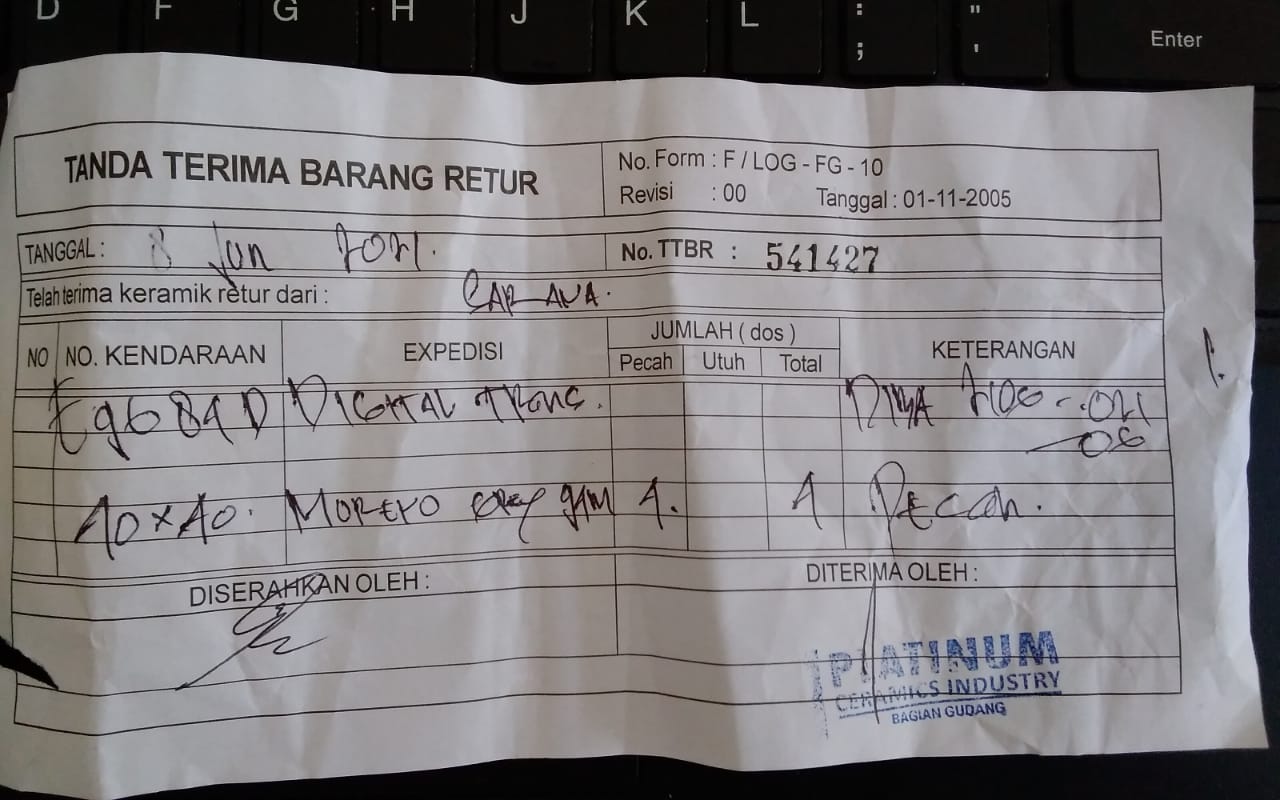 D F G H J K L : ; " ' Enter
TANDA TERIMA BARANG RETUR
No. Form : F / LOG - FG - 10
Revisi : 00 Tanggal : 01-11-2005
TANGGAL : 8 Jun 2021.
No. TTBR : 541427
Telah terima keramik retur dari :
NO NO. KENDARAAN EXPEDISI JUMLAH ( dos ) KETERANGAN
Pecah Utuh Total
DIGITAL TRANS.
40x40. MORERO GREY 4. 4 PECAH.
DISERAHKAN OLEH : DITERIMA OLEH :
PLATINUM
CERAMICS INDUSTRY
BAGIAN GUDANG